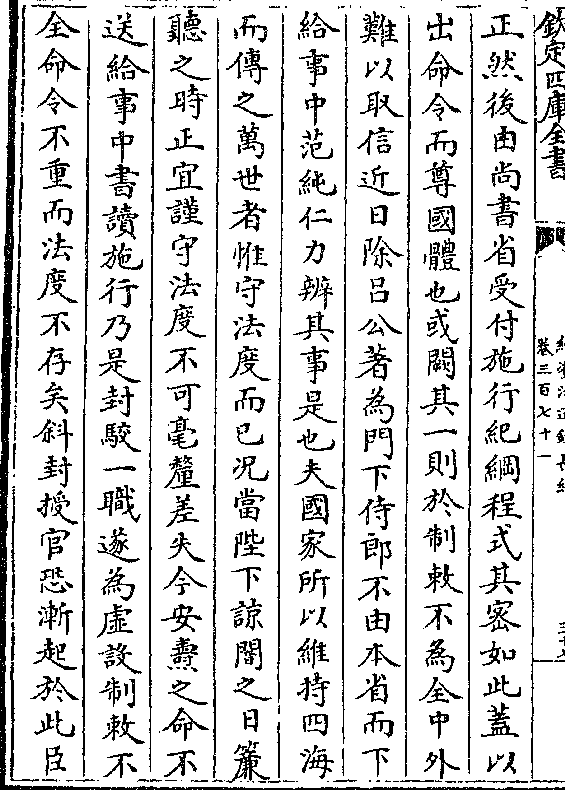 欽定四庫全書
卷三百七十一
正然後由尚書省受付施行紀綱程式其密如此蓋以
出命令而尊國體也或闕其一則於制敕不為全中外
難以取信近日除呂公著為門下侍郎不由本省而下
給事中范純仁力辨其事是也夫國家所以維持四海
而傳之萬世者惟守法度而已况當陛下諒闇之日簾
聽之時正宜謹守法度不可毫釐差失今安燾之命不
送給事中書讀施行乃是封駮一職遂為虛設制敕不
全命令不重而法度不存矣斜封授官恐漸起於此臣